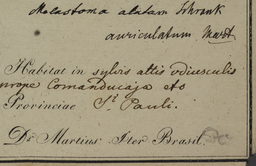 Melastoma alatum Schrank
auriculatum Mart
Habitat in sylvis altis udiusculis
prope Comanducaja etc
Provinciae St Pauli.
Dr Martius Iter Brasil.